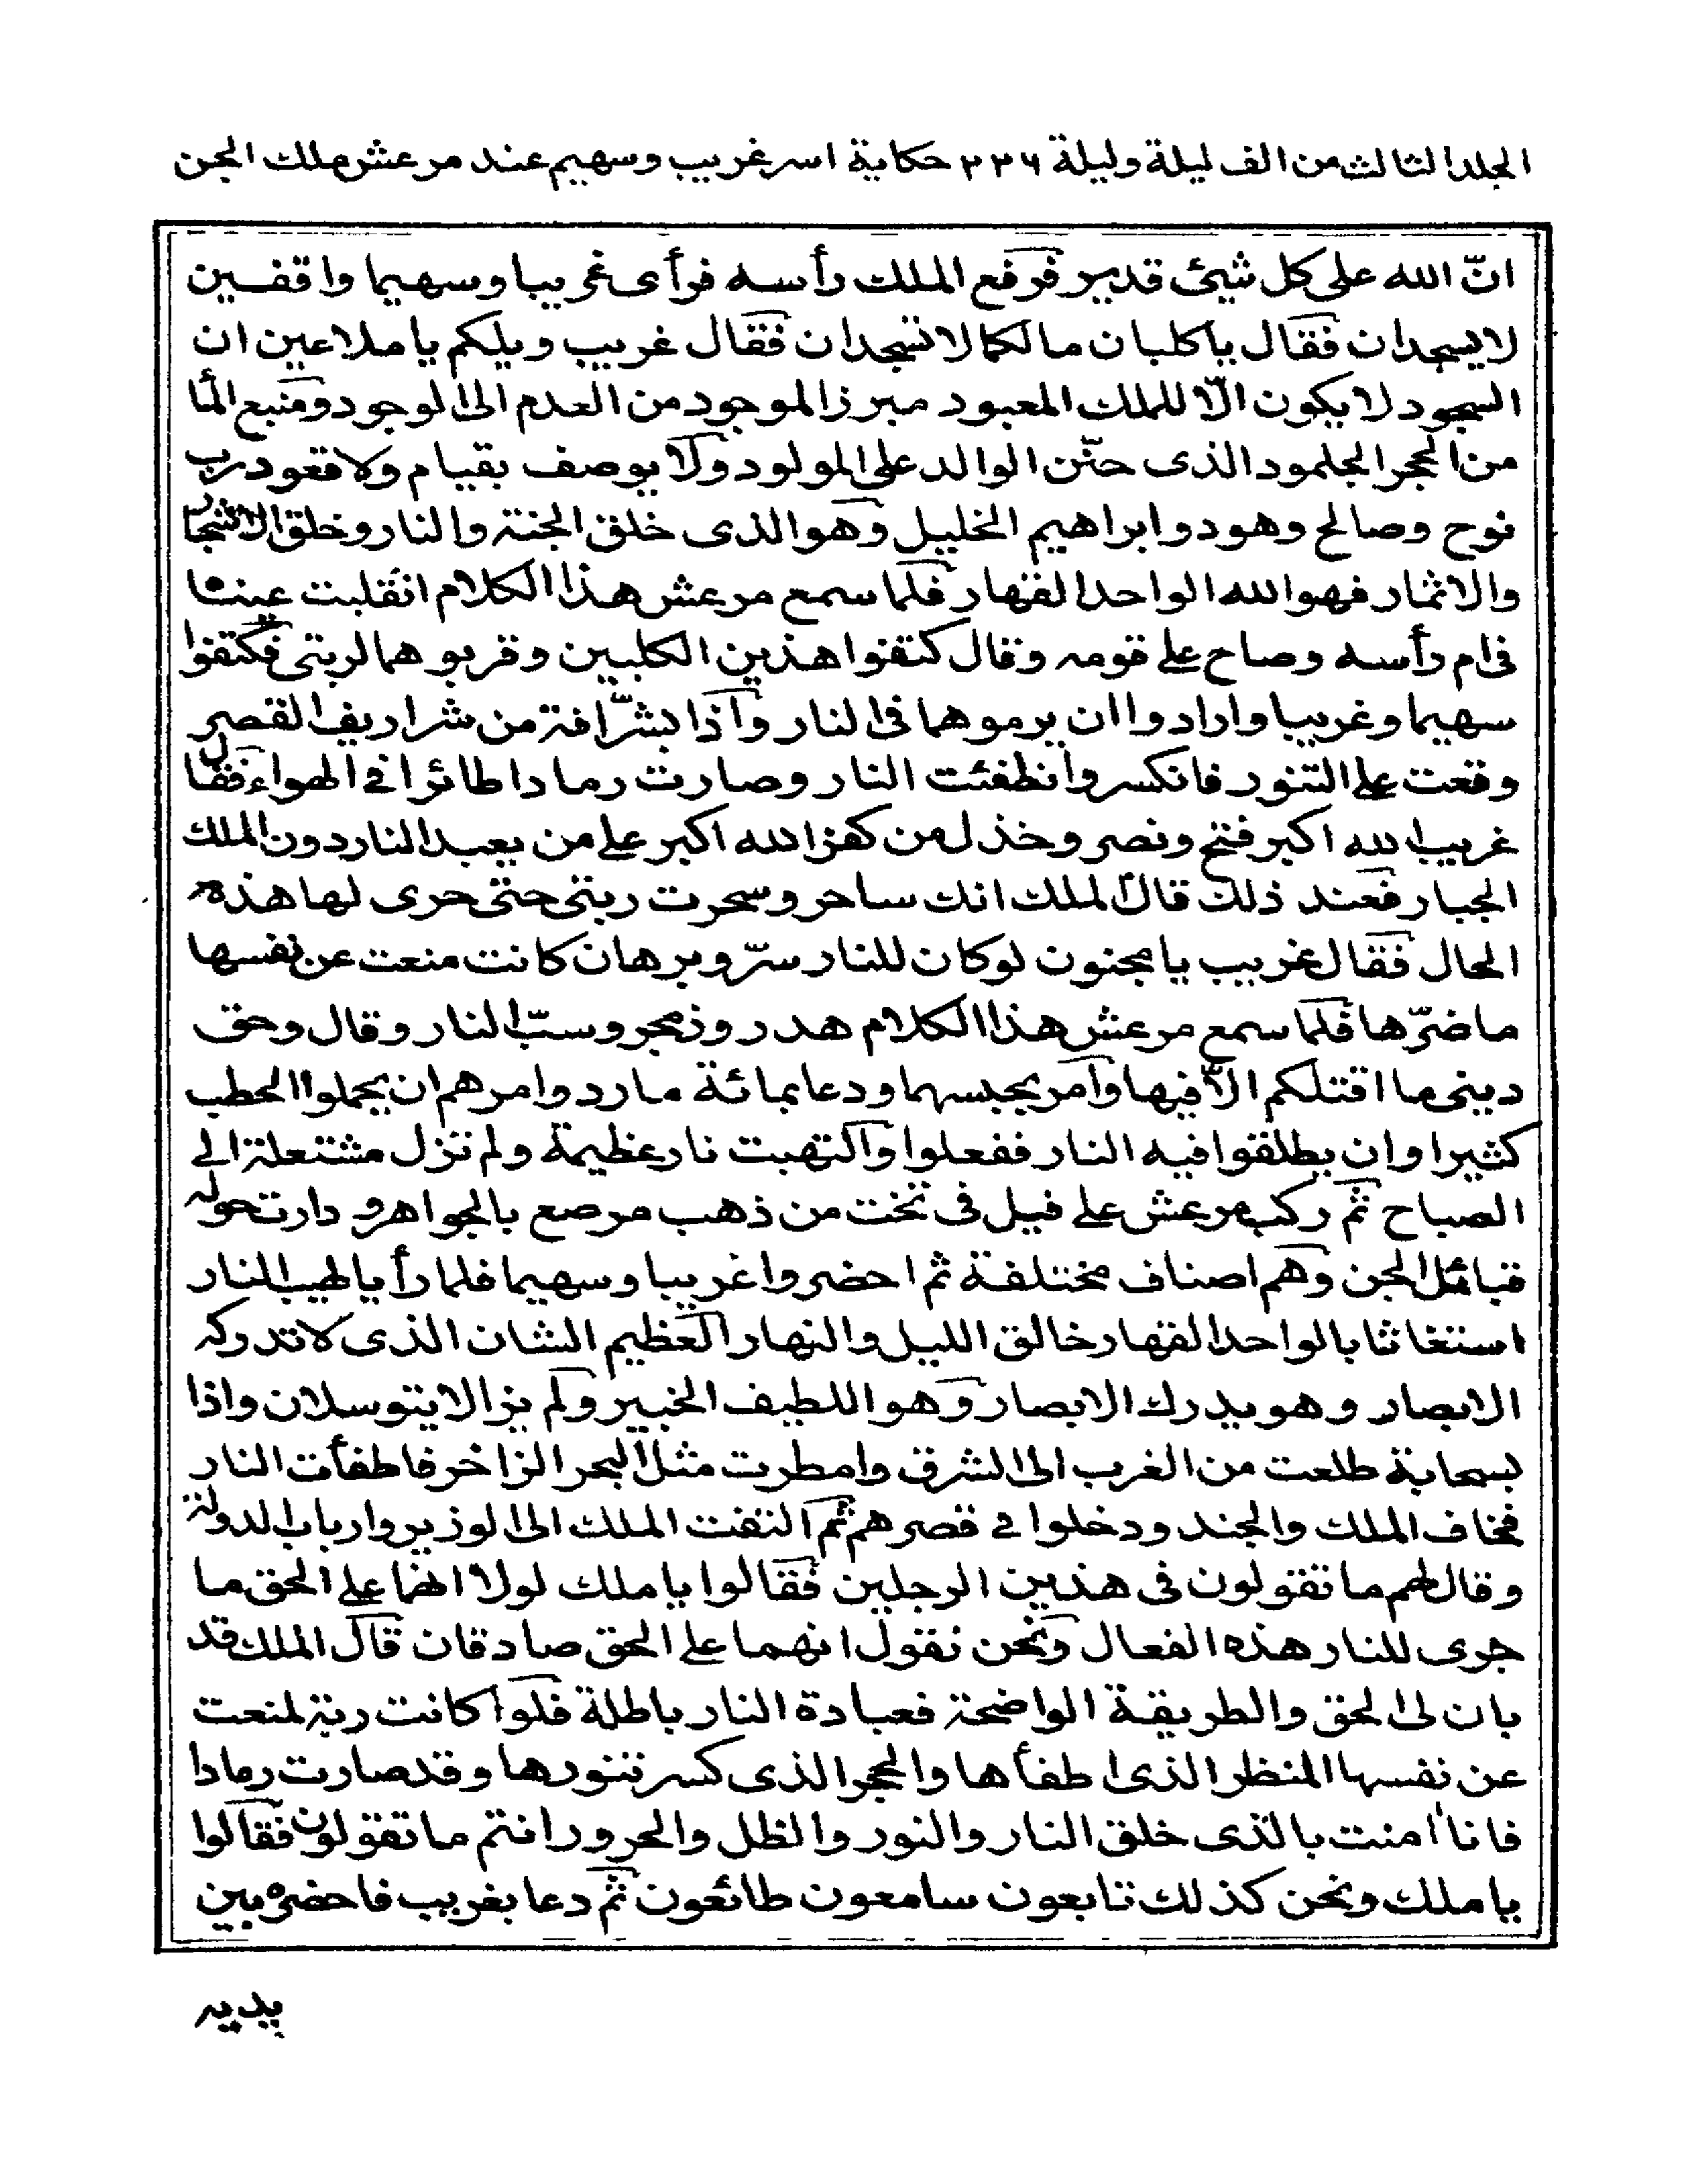 الجلد الثالث من الف ليلة وليلة ٣٣٦ حكاية اسر غريب وسهيم عند مرعش ملك الجن
انّ الله على كل شيئ قدير فرفع الملك رأسه فرأى غريبا وسهيما واقفين
لا يسجدان فقال يا كلبان ما لكما لا تسجدان فقال غريب ويلكم يا ملاعين ان
السجود لا يكون الّا للملك المعبود مبرز الموجود من العدم الى الوجود ومنبع المأ
من الحجر الجلمود الذى حنّن الوالد على المولود ولا يوصف بقيام ولا قعود رب
نوح وصالح وهود وابراهيم الخليل وهو الذى خلق الجنة والنار وخلق الاشجار
والاثمار فهو الله الواحد القهار فلما سمع مرعش هذا الكلام انقلبت عيناه
فى ام رأسه وصاح على قومه وقال كتفوا هذين الكلبين وقربوهما لربتى فكتفوا
سهيما وغريبا وارادوا ان يرموهما فى النار واذا بشرّافة من شراريف القصر
وقعت على التنور فانكسر وانطفئت النار وصارت رمادا طائرا فى الهواء فقال
غريب الله اكبر فتح ونصر وخذل من كفر الله اكبر على من يعبد النار دون الملك
الجبار فعند ذلك قال الملك انك ساحر وسحرت ربتى حتى جرى لها هذه
الحال فقال غريب يا مجنون لو كان للنار سرّ وبرهان كانت منعت عن نفسها
ما ضرّها فلما سمع مرعش هذا الكلام هدر وزمجر وسبّ النار وقال وحق
دينى ما اقتلكم الّا فيها وامر بحبسهما ودعا بمائة مارد وامرهم ان يحملوا الحطب
كثيرا وان يطلقوا فيه النار ففعلوا والتهبت نار عظيمة ولم تزل مشتعلة الى
الصباح ثم ركب مرعش على فيل فى تخت من ذهب مرصع بالجواهر و دارت حوله
قبائل الجن وهم اصناف مختلفة ثم احضروا غريبا وسهيما فلما رأيا لهيب النار
استغاثا بالواحد القهار خالق الليل والنهار العظيم الشان الذى لا تدركه
الابصار وهو يدرك الابصار وهو اللطيف الخبير ولم يزالا يتوسلان واذا
بسحابة طلعت من الغرب الى الشرق وامطرت مثل البحر الزاخر فاطفأت النار
فخاف الملك والجند ودخلوا فى قصرهم ثم التفت الملك الى الوزير وارباب الدولة
وقال لهم ما تقولون فى هذين الرجلين فقالوا يا ملك لولا انهما على الحق ما
جرى للنار هذه الفعال ونحن نقول انهما على الحق صادقان قال الملك قد
بان لى الحق والطريقة الواضحة فعبادة النار باطلة فلو كانت ربة لمنعت
عن نفسها المنظر الذى اطفأها والحجر الذى كسر تنورها وقد صارت رمادا
فانا امنت بالذى خلق النار والنور والظل والحرور انتم ما تقولون فقالوا
يا ملك ونحن كذلك تابعون سامعون طائعون ثم دعا بغريب فاحضره بين
يديه